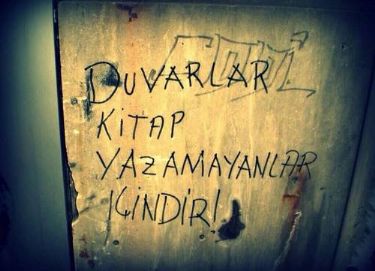 DUVARLAR
KİTAP
YAZAMAYANLAR
İÇİNDİR!